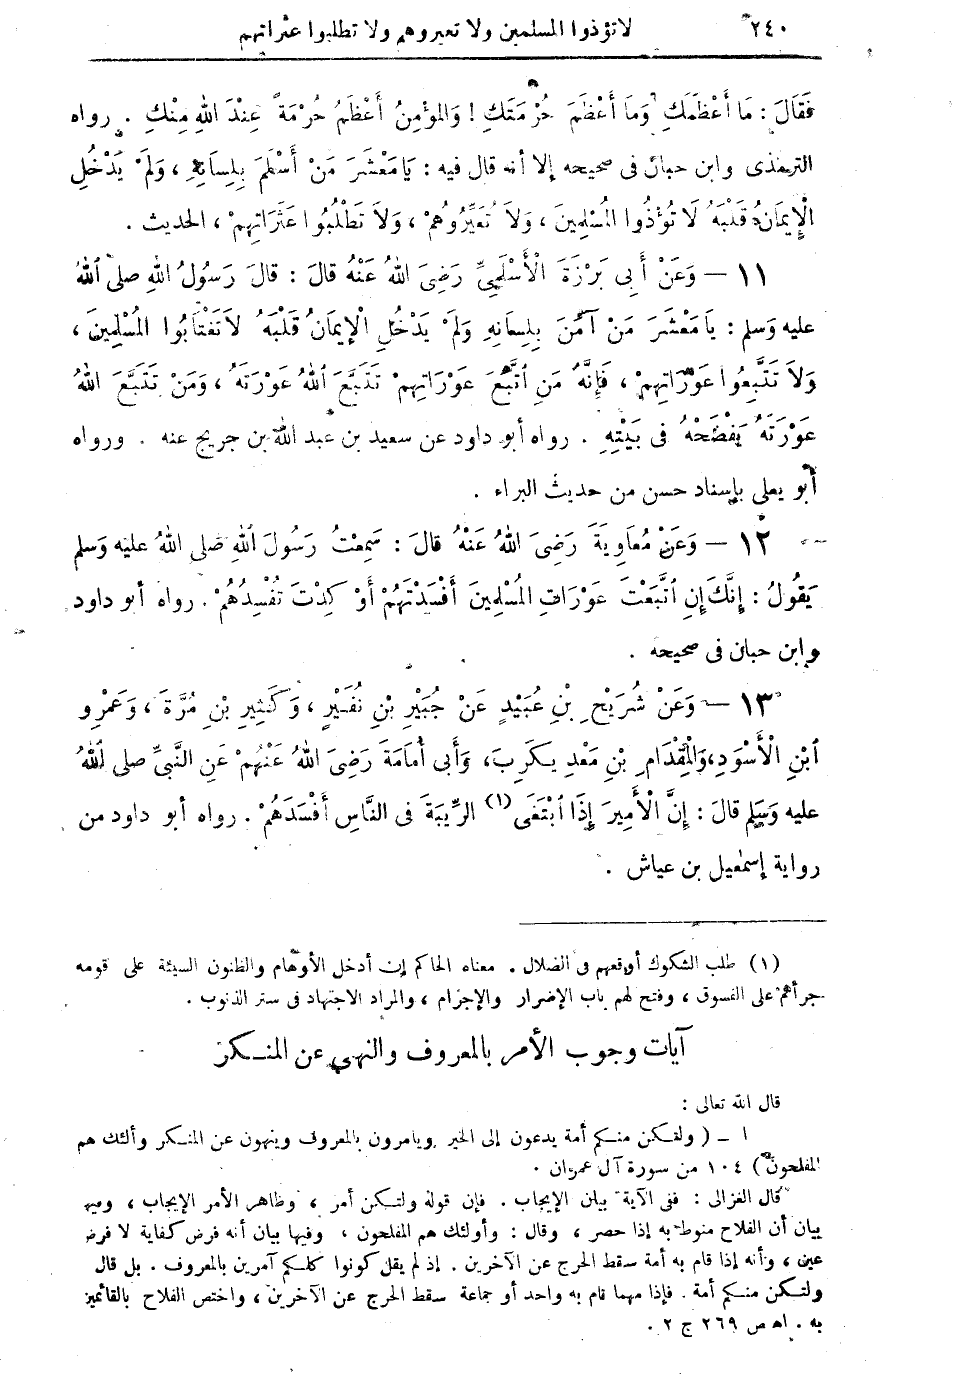 ٢٤٠ لا تؤذوا المسلمين ولا تعيروهم ولا تطلبوا عثراتهم
فَقَالَ : مَا أَعْظَمَكِ وَمَا أَعْظَمَ حُرْمَتَكِ ! وَالمُؤْمِنُ أَعْظَمُ حُرْمَةً عِنْدَ اللهِ مِنْكِ . رواه
الترمذى وابن حبان فى صحيحه إلا أنه قال فيه : يَا مَعْشَرَ مَنْ أَسْلَمَ بِلِسَانِهِ ، وَلَمْ يَدْخُلِ
الْإِيمَانُ قَلْبَهُ لَا تُؤْذُوا المُسْلِمِينَ ، وَلَا تُعَيِّرُوهُمْ ، وَلَا تَطْلُبُوا عَثَرَاتِهِمْ ، الحديث .
١١ — وَعَنْ أَبِى بَرْزَةَ الْأَسْلَمِىِّ رَضِىَ اللهُ عَنْهُ قَالَ : قَالَ رَسُولُ اللهِ صلى اللهُ
عليه وَسلم : يَا مَعْشَرَ مَنْ آمَنَ بِلِسَانِهِ وَلَمْ يَدْخُلِ الْإِيمَانُ قَلْبَهُ لَا تَغْتَابُوا المُسْلِمِينَ ،
وَلَا تَتَّبِعُوا عَوْرَاتِهِمْ ، فَإِنَّهُ مَنِ اتَّبَعَ عَوْرَاتِهِمْ تَتَبَّعَ اللهُ عَوْرَتَهُ ، وَمَنْ تَتَبَّعَ اللهُ
عَوْرَتَهُ يَفْضَحْهُ فى بَيْتِهِ . رواه أبو داود عن سعيد بن عبد الله بن جريج عنه . ورواه
أبو يعلى بإسناد حسن من حديث البراء .
١٢ — وَعَنْ مُعَاوِيَةَ رَضِىَ اللهُ عَنْهُ قَالَ : سَمِعْتُ رَسُولَ اللهِ صَلى اللهُ عليه وَسلم
يَقُولُ : إِنَّكَ إِنِ اتَّبَعْتَ عَوْرَاتِ المُسْلِمِينَ أَفْسَدْتَهُمْ أَوْ كِدْتَ تُفْسِدُهُمْ . رواه أبو داود
وابن حبان فى صحيحه .
١٣ — وَعَنْ شُرَيْحِ بْنِ عُبَيْدٍ عَنْ جُبَيْرِ بْنِ نُفَيْرٍ ، وَكَثِيرِ بْنِ مُرَّةَ ، وَعَمْرِو
ابْنِ الْأَسْوَدِ ، وَالْمِقْدَامِ بْنِ مَعْدِ يكَرِبَ ، وَأَبِى أُمَامَةَ رَضِىَ اللهُ عَنْهُمْ عَنِ النَّبِىِّ صلى اللهُ
عليه وَسَلم قَالَ : إِنَّ الْأَمِيرَ إِذَا ابْتَغَى (١) الرِّيبَةَ فى النَّاسِ أَفْسَدَهُمْ . رواه أبو داود من
رواية إسمعيل بن عياش .
(١) طلب الشكوك أوقعهم فى الضلال . معناه الحاكم إن أدخل الأوهام والظنون السيئة على قومه
جرأهم على الفسوق ، وفتح لهم باب الإضرار والإجرام ، والمراد الاجتهاد فى ستر الذنوب .
آيات وجوب الأمر بالمعروف والنهى عن المنكر
قال الله تعالى :
ا — ( ولتكن منكم أمة يدعون إلى الخير ويأمرون بالمعروف وينهون عن المنكر وألئك هم
المفلحون ) ١٠٤ من سورة آل عمران .
قال الغزالى : ففى الآية بيان الإيجاب . فإن قوله ولتكن أمر ، وظاهر الأمر الإيجاب ، وفيها
بيان أن الفلاح منوط به إذا حصر ، وقال : وأولئك هم المفلحون ، وفيها بيان أنه فرض كفاية لا فرض
عين ، وأنه إذا قام به أمة سقط الحرج عن الآخرين . إذ لم يقل كونوا كلكم آمرين بالمعروف . بل قال
ولتكن منكم أمة . فإذا مهما قام به واحد أو جماعة سقط الحرج عن الآخرين ، واختص الفلاح بالقائمين
به . اه ص ٢٦٩ ج ٢ .